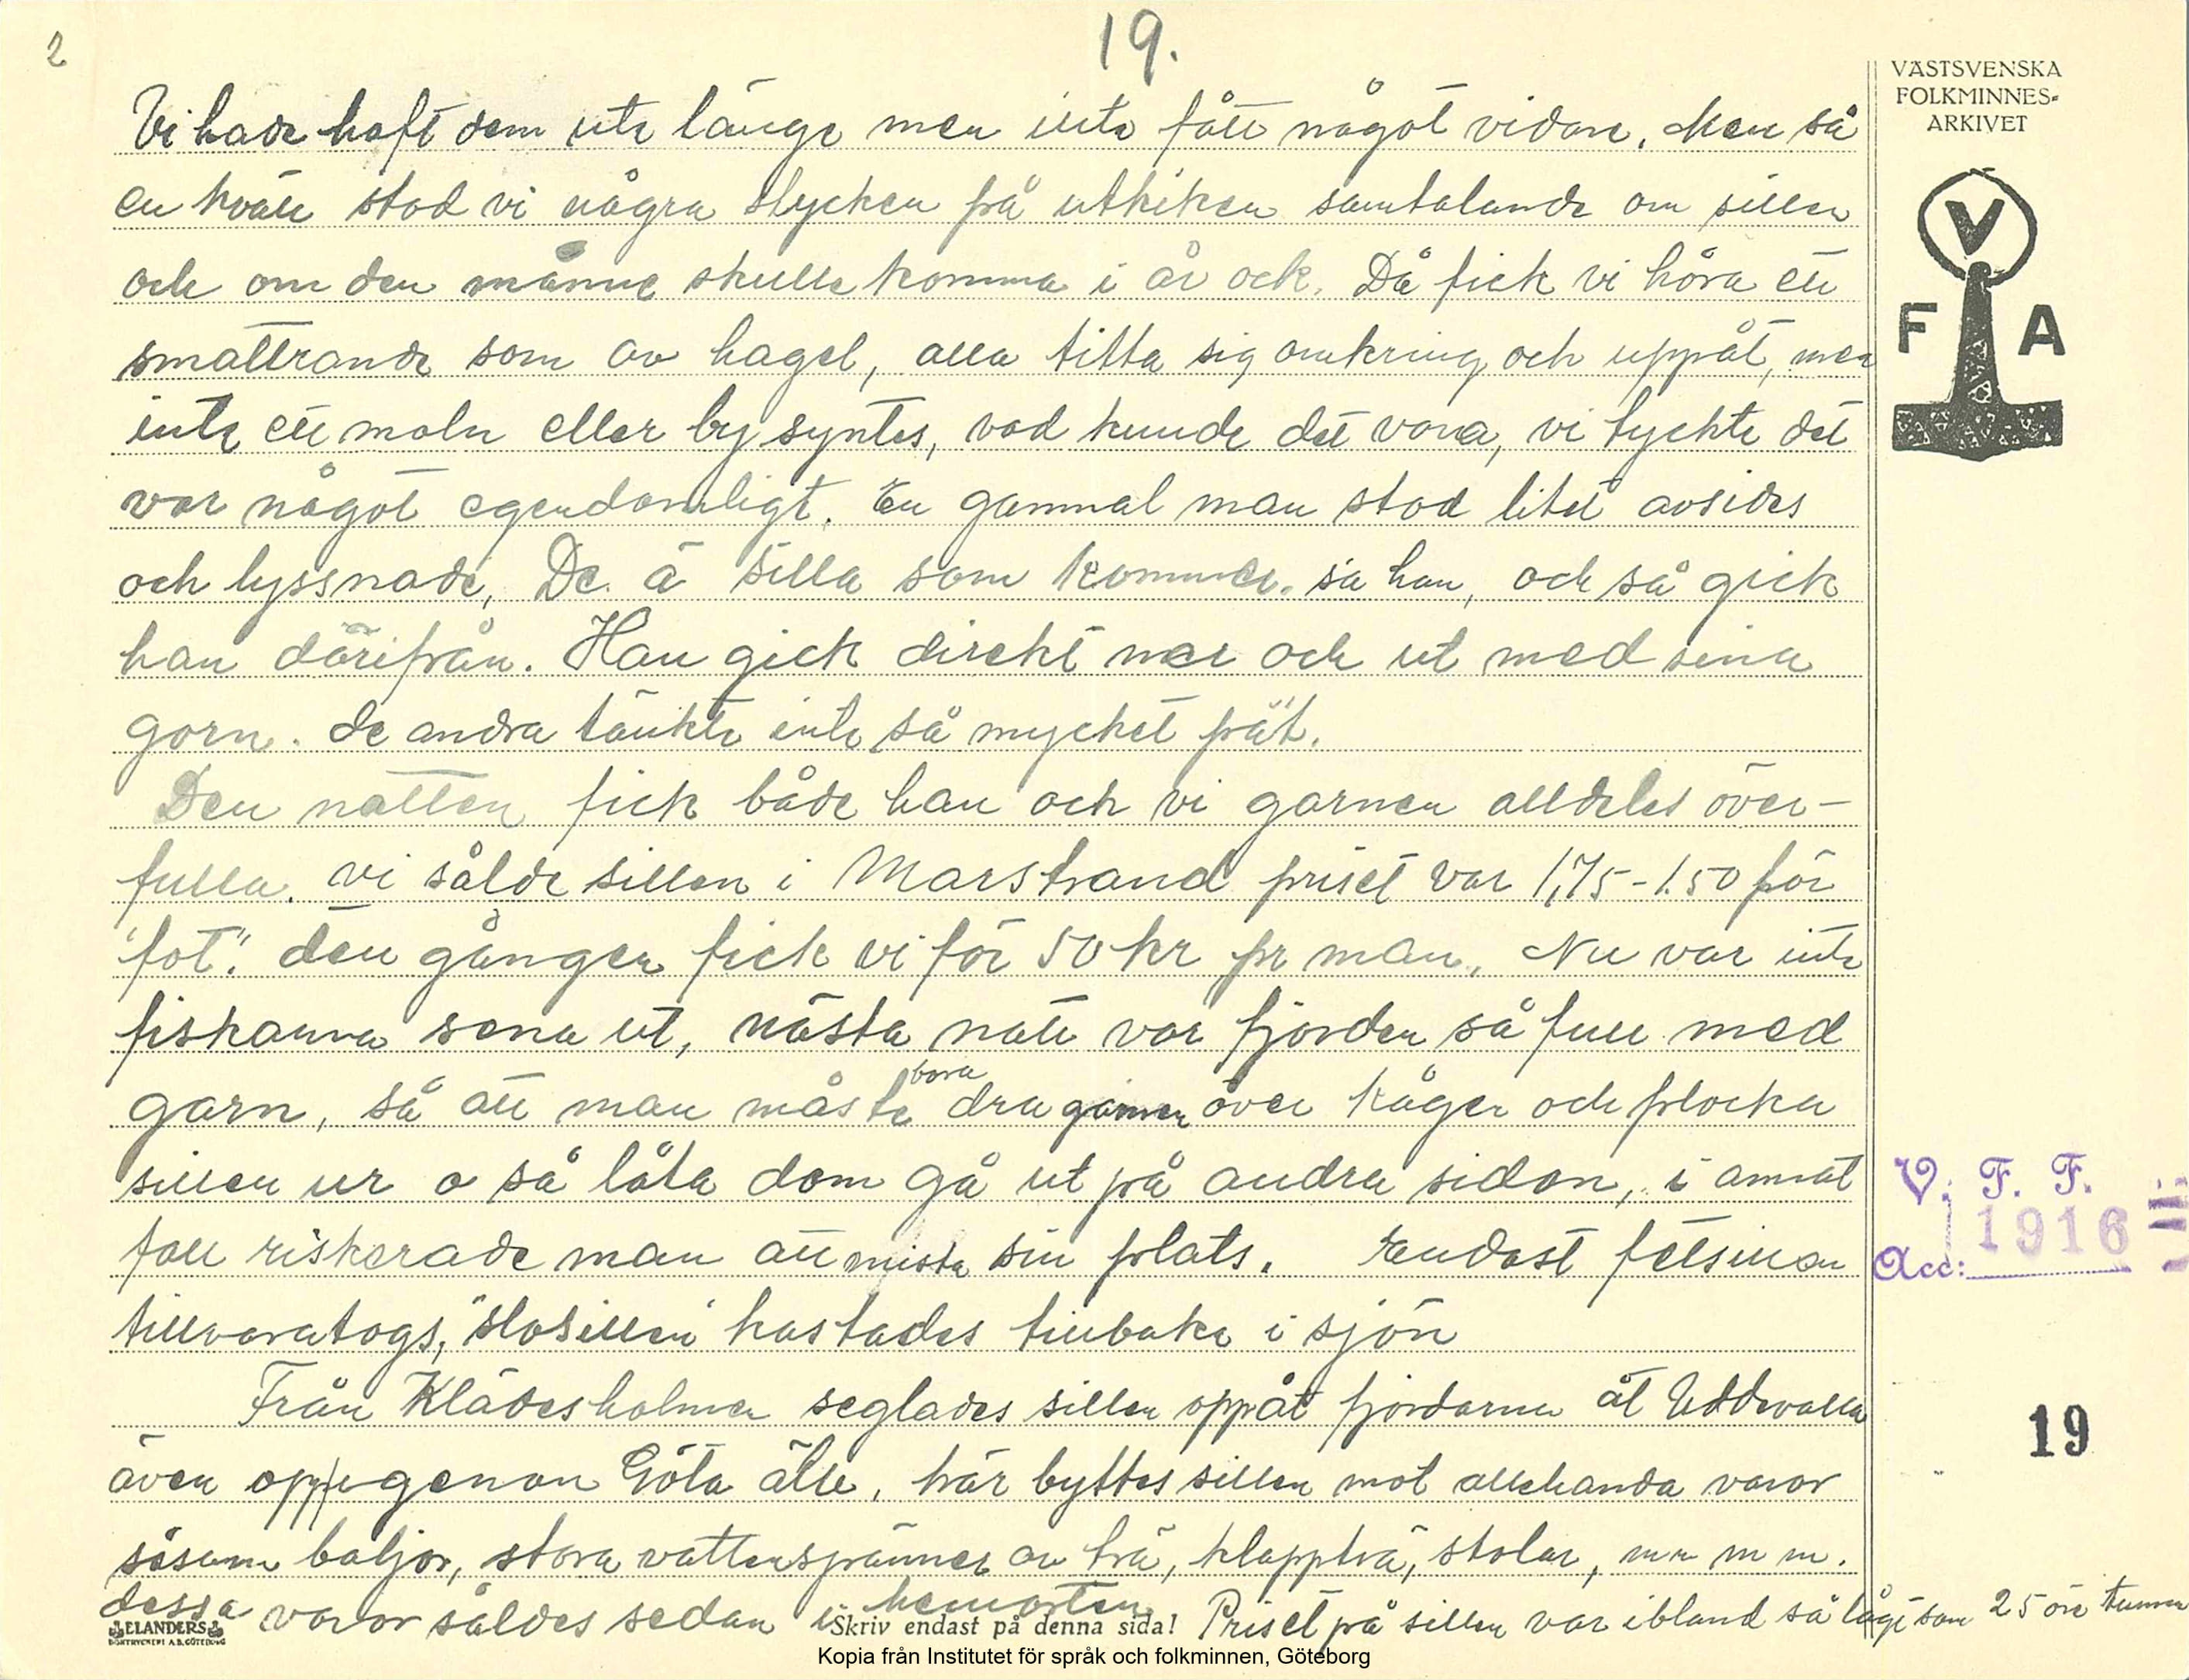 2
19.
VÄSTSVENSKA
FOLKMINNES-
ARKIVET
V
F A
Vi hade haft dem ute länge men inte fått något vidare. Men så
en kväll stod vi några stycken på utkiken samtalande om sillen
och om den månne skulle komma i år ock. Då fick vi höra ett
smattrande som av hagel, alla titta sig omkring och uppåt, men
inte ett moln eller by syntes, vad kunde det vara, vi tyckte det
var något egendomligt. En gammal man stod litet avsides
och lyssnade, De ä silla som kommer. sa han, och så gick
han därifrån. Han gick direkt ner och ut med sina
gorn. de andra tänkte inte så mycket pät.
Den natten fick både han och vi garnen alldeles över-
fulla. vi sålde sillen i Marstrand priset var 1,75-1.50 för
"fot". den gången fick vi för 50 kr pr man. Nu var inte
fiskarna sena ut, nästa natt var fjorden så full med
garn, så att man måste bara dra garnen över kåger och plocka
sillen ur o så låta dom gå ut på andra sidan, i annat
fall riskerade man att mista sin plats. Endast fetsillen
tillvaratogs, "slosillen" kastades tillbaka i sjön
Från Klädesholmen seglades sillen oppåt fjordarna åt Uddevalla
även opp igenom Göta älv, här byttes sillen mot allehanda varor
såsom baljor, stora vattenspänner av trä, klappträ, stolar, m m m m.
dessa varor såldes sedan i hemorten. Priset på sillen var ibland så lågt som 25 öre tunnan
V. F. F.
Acc: 1916
19
ELANDERS
BOKTRYCKERI A.B. GÖTEBORG
Skriv endast på denna sida!
Kopia från Institutet för språk och folkminnen, Göteborg